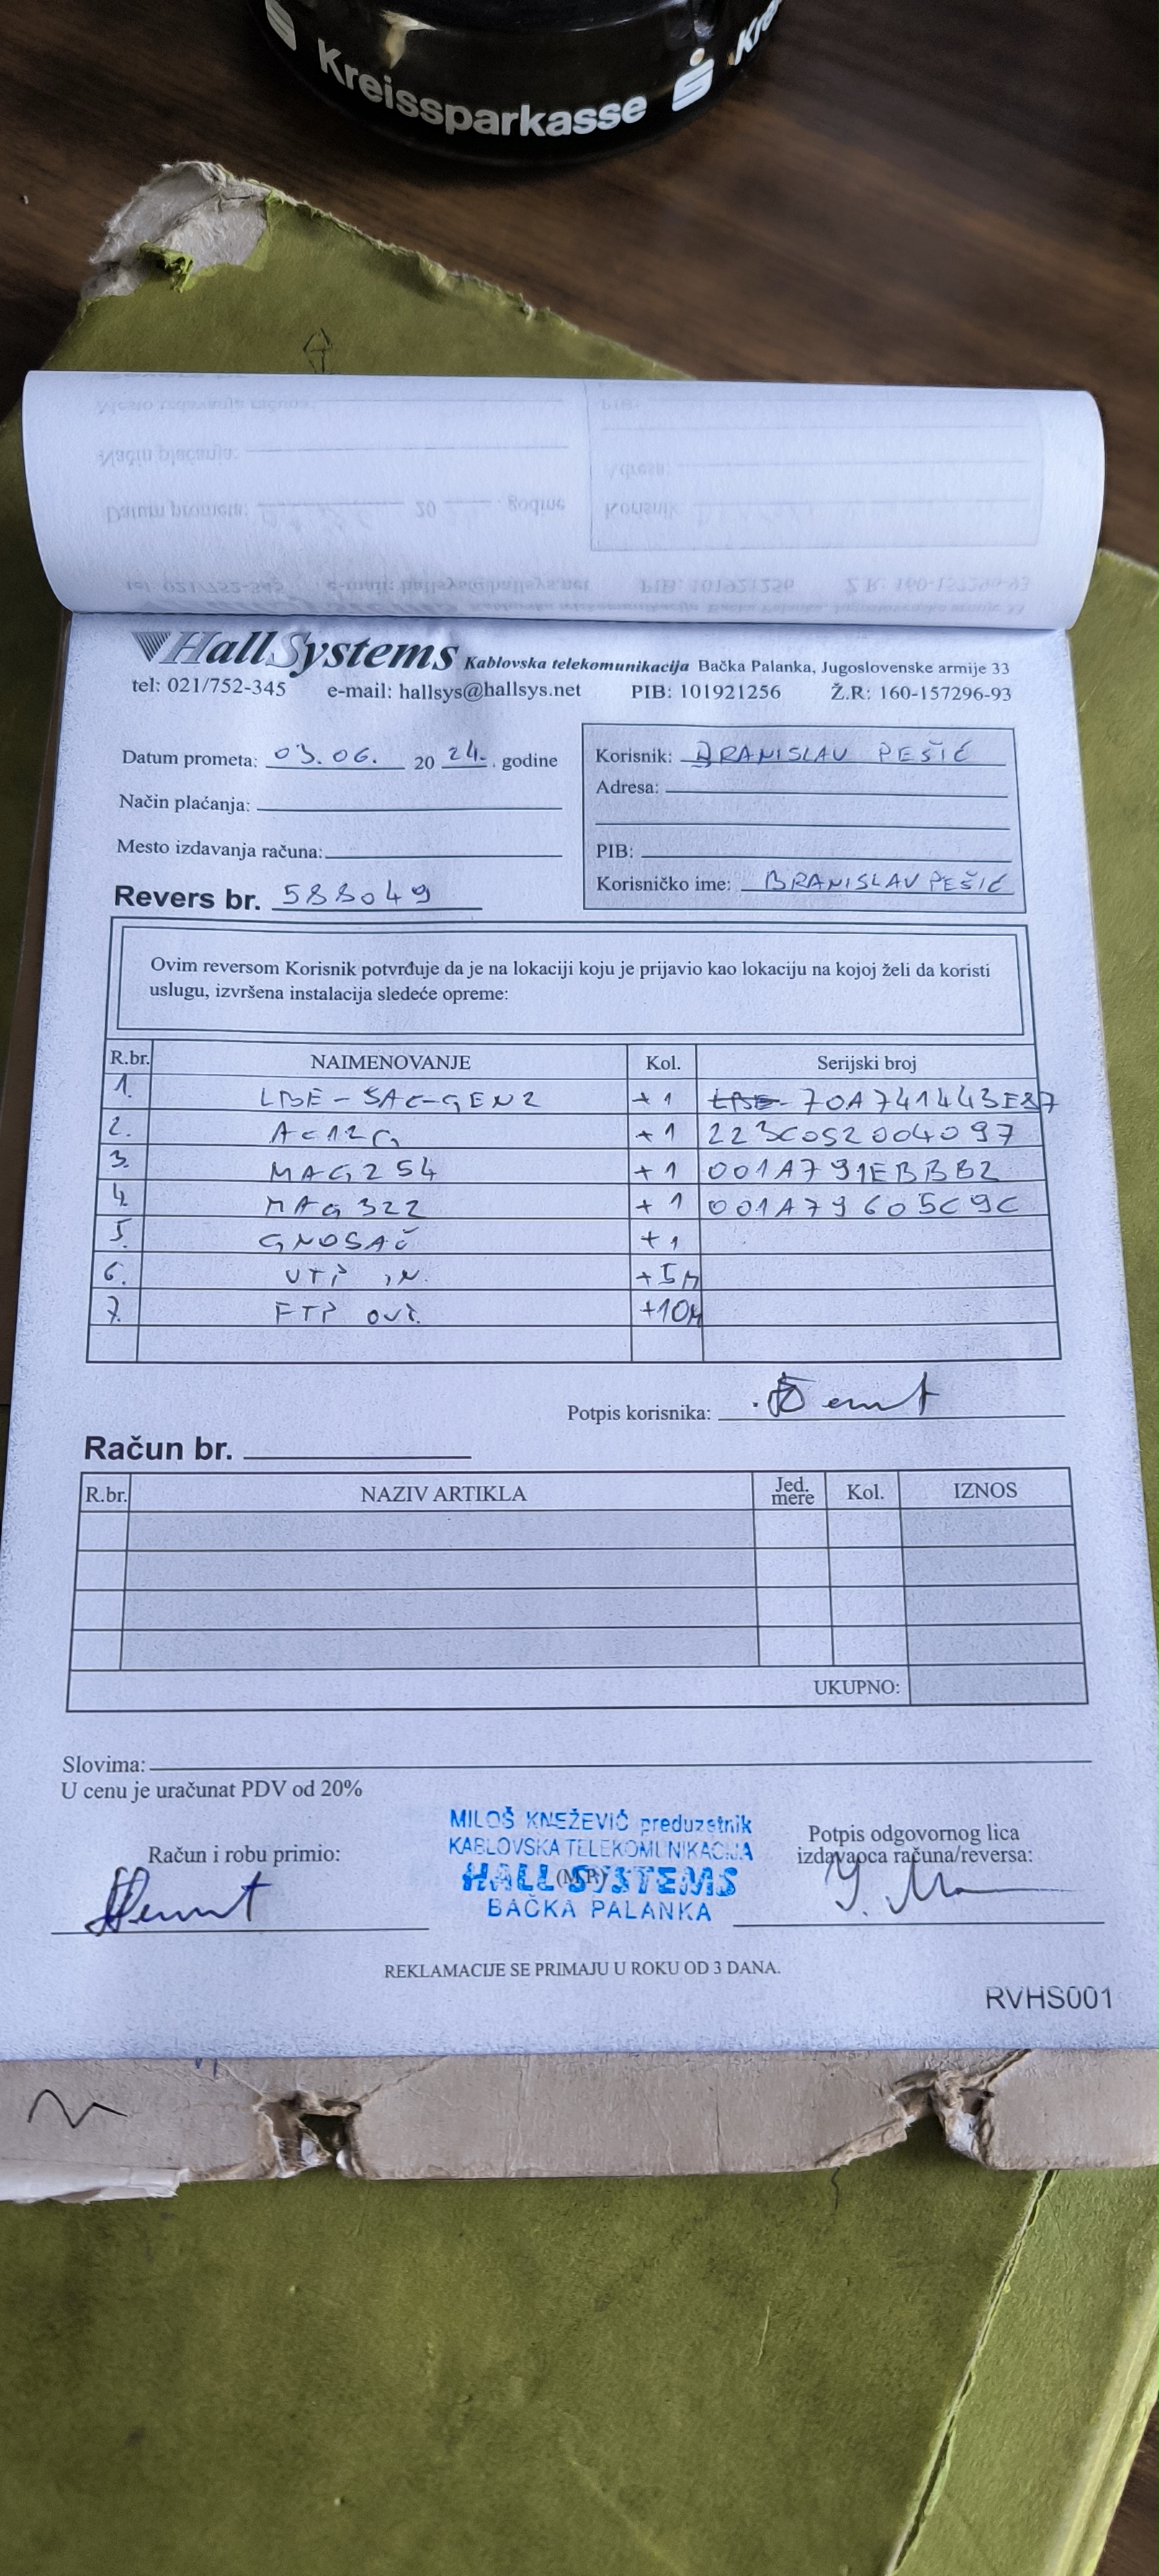 Kreissparkasse
HallSystems Kablovska telekomunikacija Bačka Palanka, Jugoslovenske armije 33
tel: 021/752-345 e-mail: hallsys@hallsys.net PIB: 101921256 Ž.R: 160-157296-93
Datum prometa: 03.06. 20 24. godine
Način plaćanja:
Mesto izdavanja računa:
Revers br. 588049
Korisnik: BRANISLAV PEŠIĆ
Adresa:
PIB:
Korisničko ime: BRANISLAV PEŠIĆ
Ovim reversom Korisnik potvrđuje da je na lokaciji koju je prijavio kao lokaciju na kojoj želi da koristi
uslugu, izvršena instalacija sledeće opreme:
R.br. NAIMENOVANJE Kol. Serijski broj
1. LBE-5AC-GEN2 +1 70A741443E87
2. AC12G +1 223C052004097
3. MAG254 +1 001A791EBBB2
4. MAG322 +1 001A79605C9C
5. GNOSAČ +1
6. UTP IN. +5M
7. FTP OUT. +10M
Potpis korisnika:
Račun br.
R.br. NAZIV ARTIKLA Jed. mere Kol. IZNOS
UKUPNO:
Slovima:
U cenu je uračunat PDV od 20%
Račun i robu primio:
MILOŠ KNEŽEVIĆ preduzetnik
KABLOVSKA TELEKOMUNIKACIJA
(M.P.)
HALL SYSTEMS
BAČKA PALANKA
Potpis odgovornog lica
izdavaoca računa/reversa:
REKLAMACIJE SE PRIMAJU U ROKU OD 3 DANA.
RVHS001